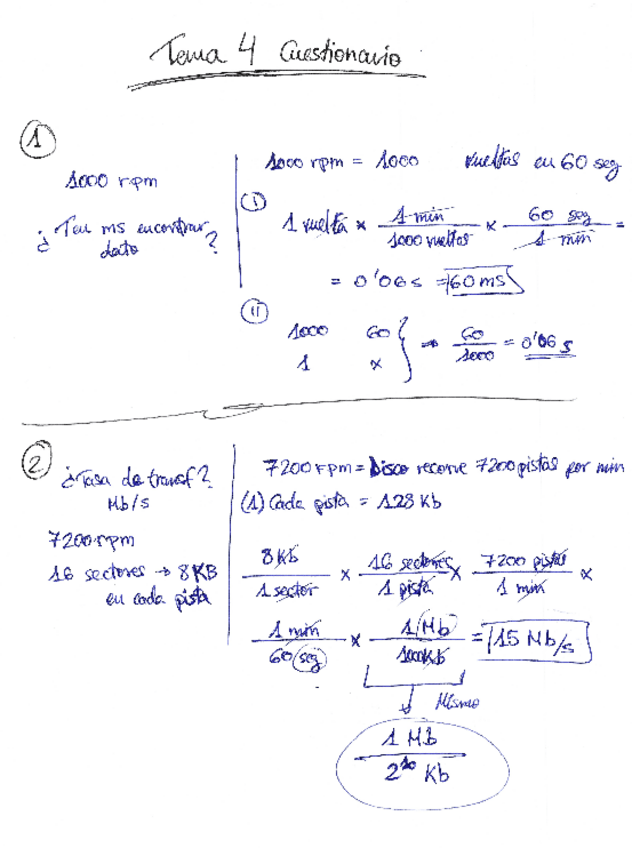 Tema 4 Cuestionario
1
1000 rpm
¿Ten ms encontrar
dato?
1000 rpm = 1000 vueltas en 60 seg
I
1 vuelta × 1 min / 1000 vueltas × 60 seg / 1 min =
= 0'06 s = 60 ms
II
1000 60
1 x
} → 60 / 1000 = 0'06 s
2
¿Tasa de transf?
Mb/s
7200 rpm
16 sectores → 8KB
en cada pista
7200 rpm = Disco recorre 7200 pistas por min
(1) Cada pista = 128 Kb
8 Kb / 1 sector × 16 sectores / 1 pista × 7200 pistas / 1 min ×
1 min / 60 seg × 1 Mb / 1000 Kb = 15 Mb/s
Mismo
1 Mb
2^10 Kb